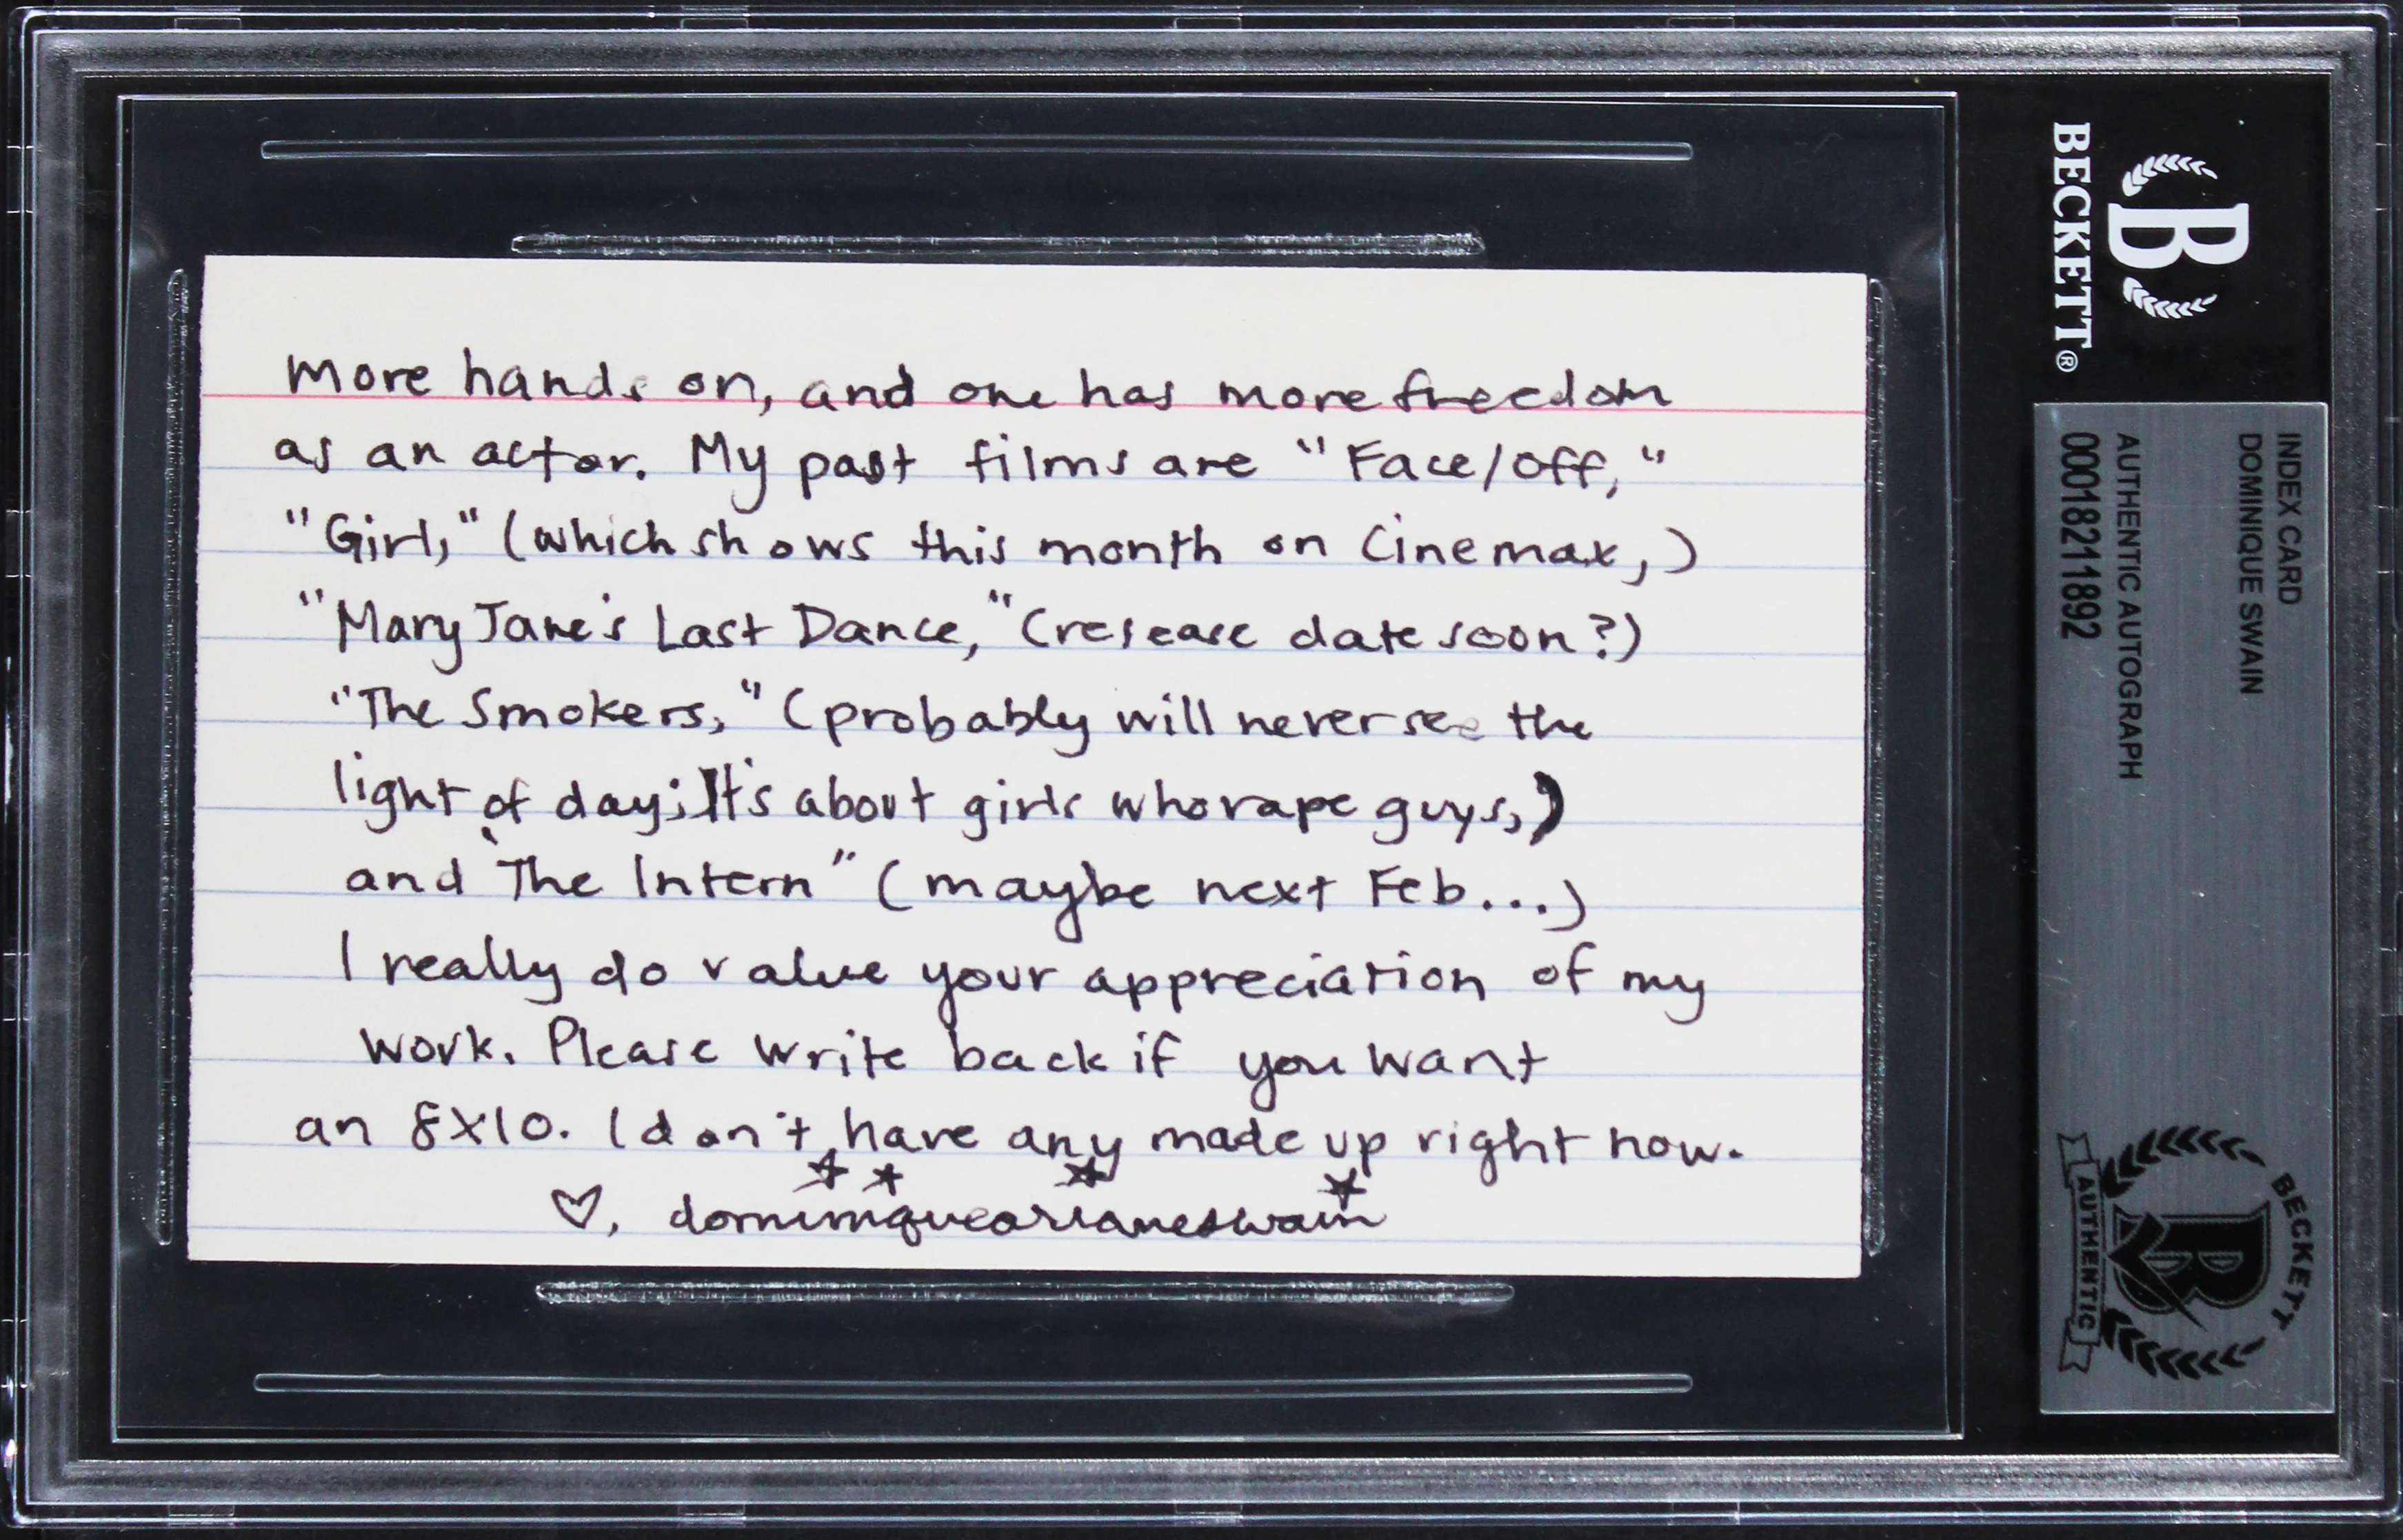 more hands on, and one has more freedom
as an actor. My past films are "Face/Off,"
"Girl," (which shows this month on Cinemax,)
"Mary Jane's Last Dance," (release date soon?)
"The Smokers," (probably will never see the
light of day; It's about girls who rape guys,)
and "The Intern" (maybe next Feb...)
I really do value your appreciation of my
work. Please write back if you want
an 8X10. I don't have any made up right now.
♡, dominiquearianeswain
BECKETT®
B
INDEX CARD
DOMINIQUE SWAIN
AUTHENTIC AUTOGRAPH
00018211892
BECKETT
B
AUTHENTIC